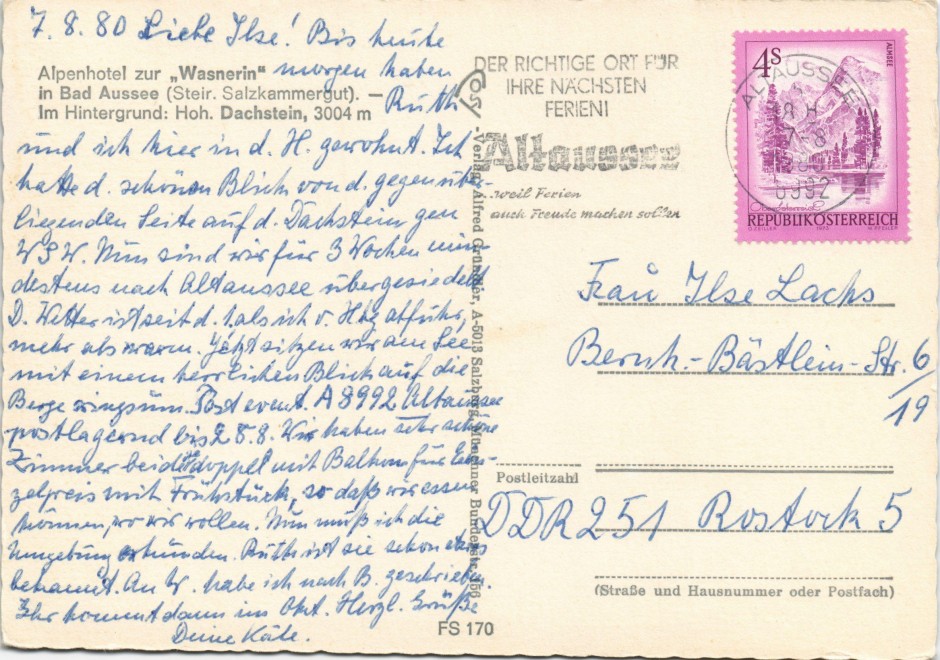 7.8.80 Liebe Ilse! Bis heute
morgen haben
Ruth
Alpenhotel zur „Wasnerin"
in Bad Aussee (Steir. Salzkammergut). —
Im Hintergrund: Hoh. Dachstein, 3004 m
und ich hier in d. H. gewohnt. Ich
hatte d. schönen Blick von d. gegenüber-
liegenden Seite auf d. Dachstein gen
WSW. Nun sind wir für 3 Wochen min-
destens nach Altaussee übergesiedelt
D. Wetter ist seit d. 1. als ich v. Hbg abfuhr,
mehr als warm. Jetzt sitzen wir am See
mit einem herrlichen Blick auf die
Berge ringsum. Post event. A 8992 Altaussee
postlagernd bis 28.8. Wir haben sehr schöne
Zimmer beide doppel mit Balkon für Ein-
zelpreis mit Frühstück, so daß wir essen
können, wo wir wollen. Nun muß ich die
Umgebung erkunden. Ruth ist sie schon etwas
bekannt. An W. habe ich nach B. geschrieben.
Ihr kommt dann im Okt. Herzl. Grüße
Deine Käte.
DER RICHTIGE ORT FÜR
IHRE NÄCHSTEN
FERIEN!
Altaussee
weil Ferien
auch Freude machen sollen
ALTAUSSEE
18 H
7-8
80
8992
4S
ALMSEE
REPUBLIK ÖSTERREICH
1973
Verlag Alfred Gründler, A-5013 Salzburg, Münchner Bundesstr. 156
Frau Ilse Lachs
Bernh.-Bästlein-Str. 6
/19
Postleitzahl
DDR 251 Rostock 5
(Straße und Hausnummer oder Postfach)
FS 170